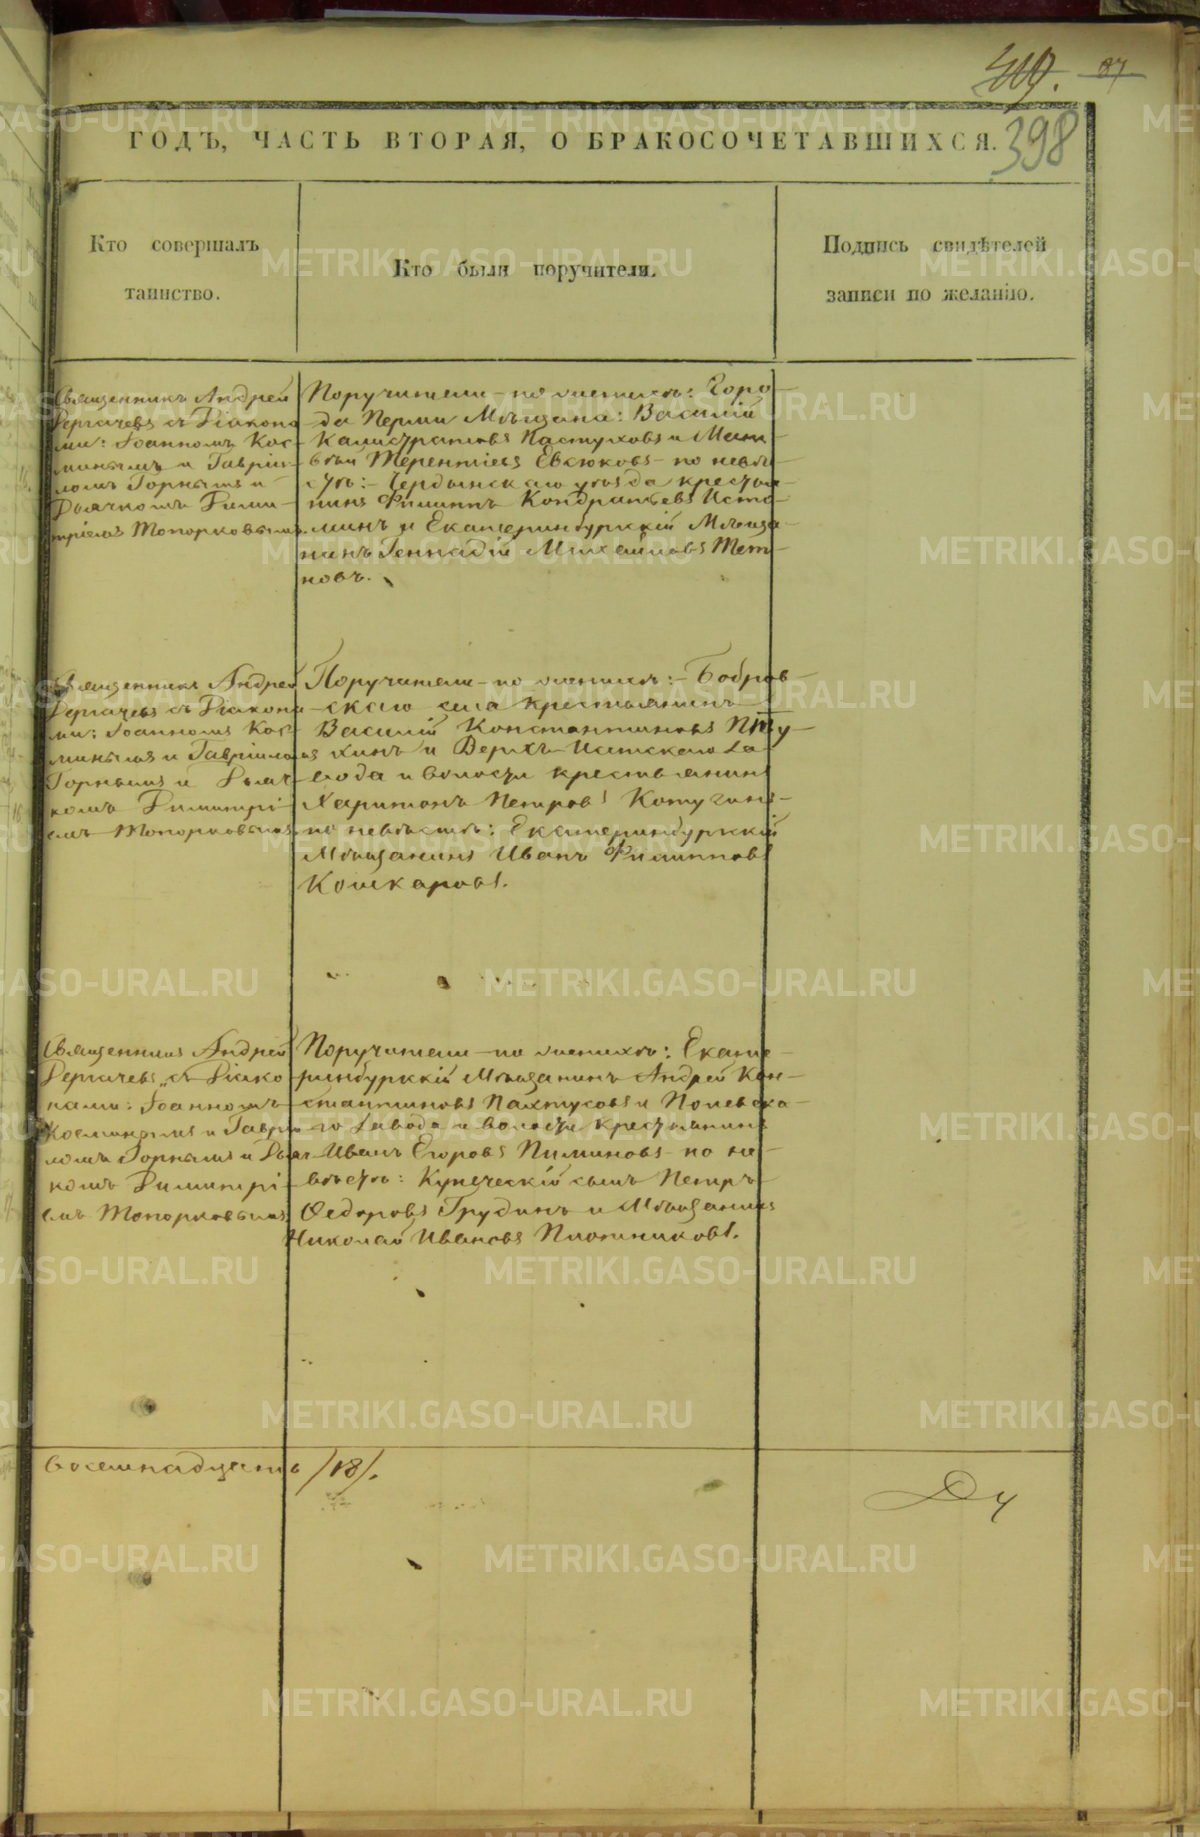 419. 87
398
ГОДЪ, ЧАСТЬ ВТОРАЯ, О БРАКОСОЧЕТАВШИХСЯ.
Кто совершалъ
таинство.
Кто были поручители.
Подпись свидѣтелей
записи по желанію.
Священникъ Андрей
Дергачевъ съ Діакона
ми: Іоанномъ Кос-
минымъ и Гавріи-
ломъ Горнымъ и
Дьячкомъ Дими-
тріемъ Топорковымъ
Поручители – по женихѣ: Горо-
да Перми Мѣщане: Василій
Калистратовъ Пастуховъ и Мат-
вѣй Терентіевъ Евсюковъ – по невѣ-
стѣ: – Чердынскаго уѣзда крестья-
нинъ Филиппъ Кондратьевъ Исто-
минъ и Екатеринбургскій Мѣща-
нинъ Геннадій Михайловъ
новъ.
Священникъ Андрей
Дергачевъ съ Діакона
ми: Іоанномъ Кос-
минымъ и Гавріиломъ
Горнымъ и Дьяч-
комъ Димитрі-
емъ Топорковымъ
Поручители – по женихѣ: – Бобров-
скаго села крестьянинъ
Василій Константиновъ
хинъ и Верхъ-Исетскаго за
вода и волости крестьянинъ
Харитонъ Петровъ
по невѣстѣ: Екатеринбургскій
Мѣщанинъ Иванъ Филипповъ
Кошкаровъ.
Священникъ Андрей
Дергачевъ съ Діако-
нами: Іоанномъ
Косминымъ и Гаврі-
ломъ Горнымъ и Дьяч-
комъ Димитрі-
емъ Топорковымъ
Поручители – по женихѣ: Екате-
ринбургскій Мѣщанинъ Андрей Кон-
стантиновъ Пахтусовъ и Полевска-
го завода и волости крестьянинъ
Иванъ Егоровъ Пиминовъ – по не-
вѣстѣ: Купеческій сынъ Петръ
Ѳедоровъ Грудинъ и Мѣщанинъ
Николай Ивановъ Плотниковъ.
восемнадцать /18/.